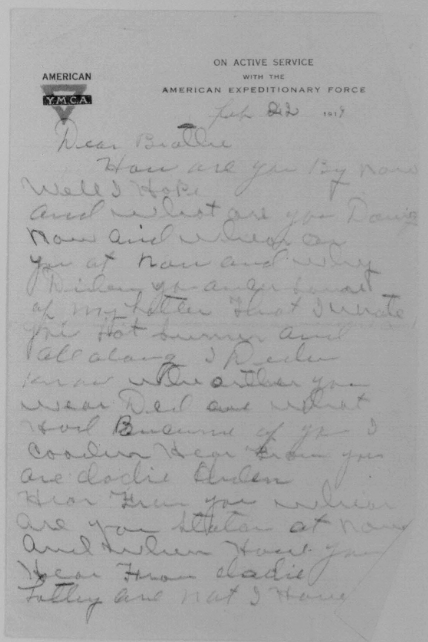 AMERICAN
Y.M.C.A.
ON ACTIVE SERVICE
WITH THE
AMERICAN EXPEDITIONARY FORCE
Feb 22 1919
Dear Brother
How are you By now
Well I Hope
and what are you Doing
now and where are
you at now and why
you some
of my Letter That I wrote
you Last summer and
all along I
know you
wear Ded are what
Had of you I
Hear From you
are dadie
Hear From you
are you at now
and when Have you
Hear From dadie
are not I Have